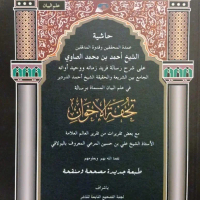 علم البيان
حاشية
عمدة المحققين وقدوة المدققين
الشيخ أحمد بن محمد الصاوي
على شرح رسالة فريد زمانه ووحيد أوانه
الجامع بين الشريعة والحقيقة الشيخ أحمد الدردير
في علم البيان المسماة برسالة
تحفة الإخوان
مع بعض تقريرات من تقرير العالم العلامة
الأستاذ الشيخ علي بن حسين المعروف بالبولاقي
نفعنا الله بهم وبعلومهم
طبعة جديدة مصححة ومنقحة
بإشراف
لجنة التصحيح